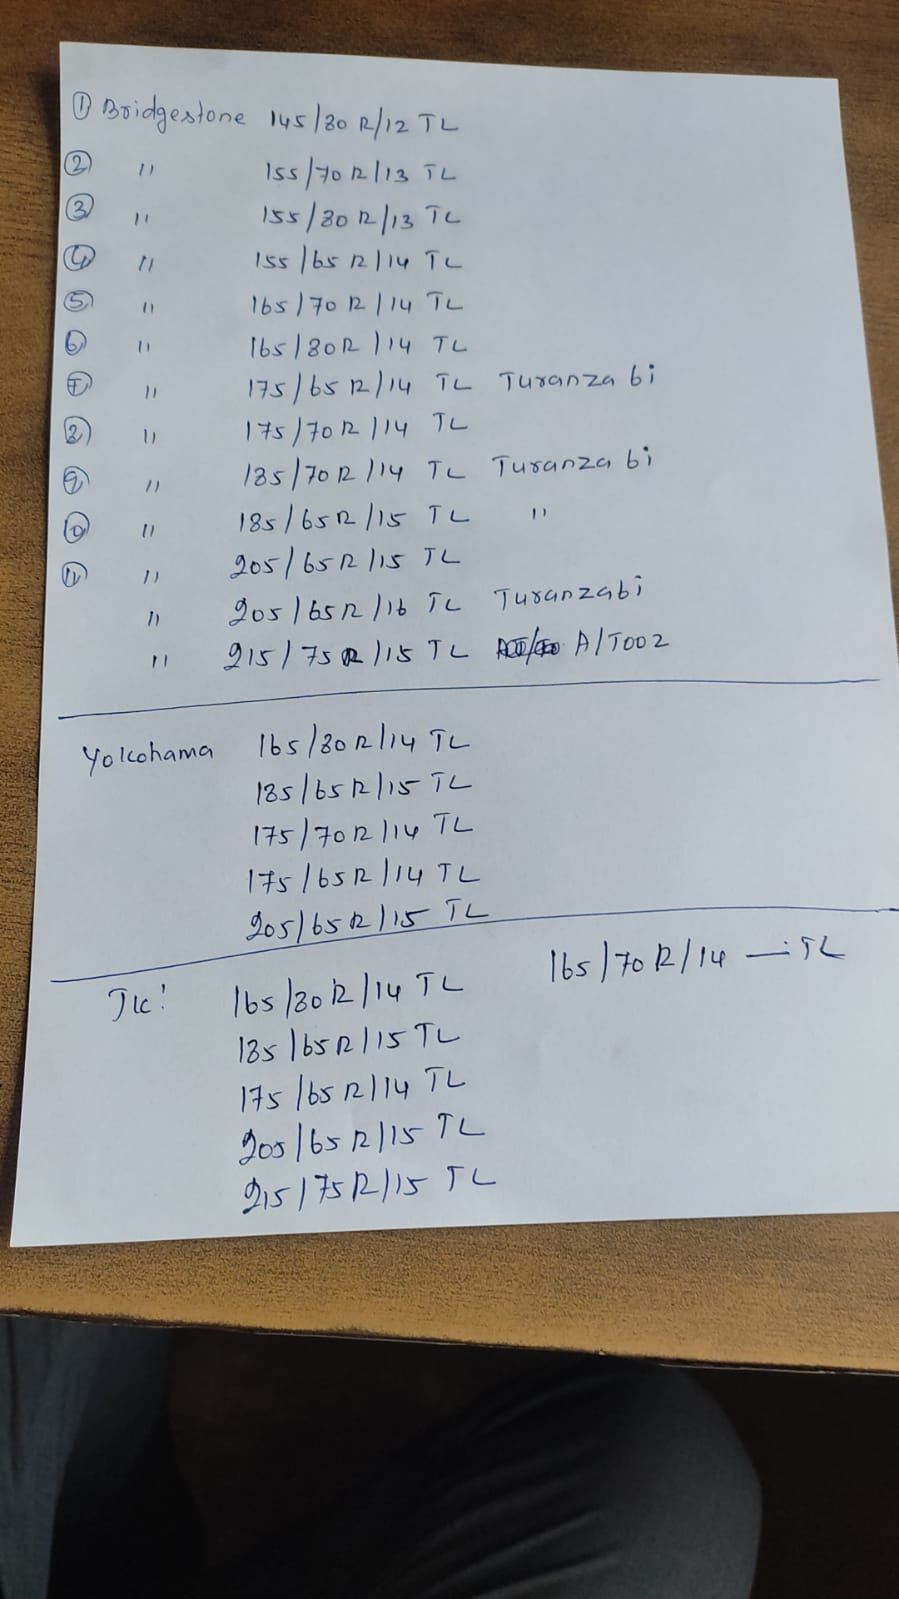 ① Bridgestone 145/80 R/12 TL
② " 155/70 R/13 TL
③ " 155/80 R/13 TL
④ " 155/65 R/14 TL
⑤ " 165/70 R/14 TL
⑥ " 165/80R/14 TL
⑦ " 175/65 R/14 TL Turanza 6i
⑧ " 175/70R/14 TL
⑨ " 185/70R/14 TL Turanza 6i
⑩ " 185/65R/15 TL "
⑪ " 205/65R/15 TL
" 205/65R/16 TL Turanza6i
" 215/75R/15 TL A/T002
Yokohama 165/80R/14 TL
185/65R/15 TL
175/70R/14 TL
175/65R/14 TL
205/65R/15 TL
JK! 165/80R/14 TL 165/70R/14 — TL
185/65R/15 TL
175/65R/14 TL
205/65R/15 TL
215/75R/15 TL